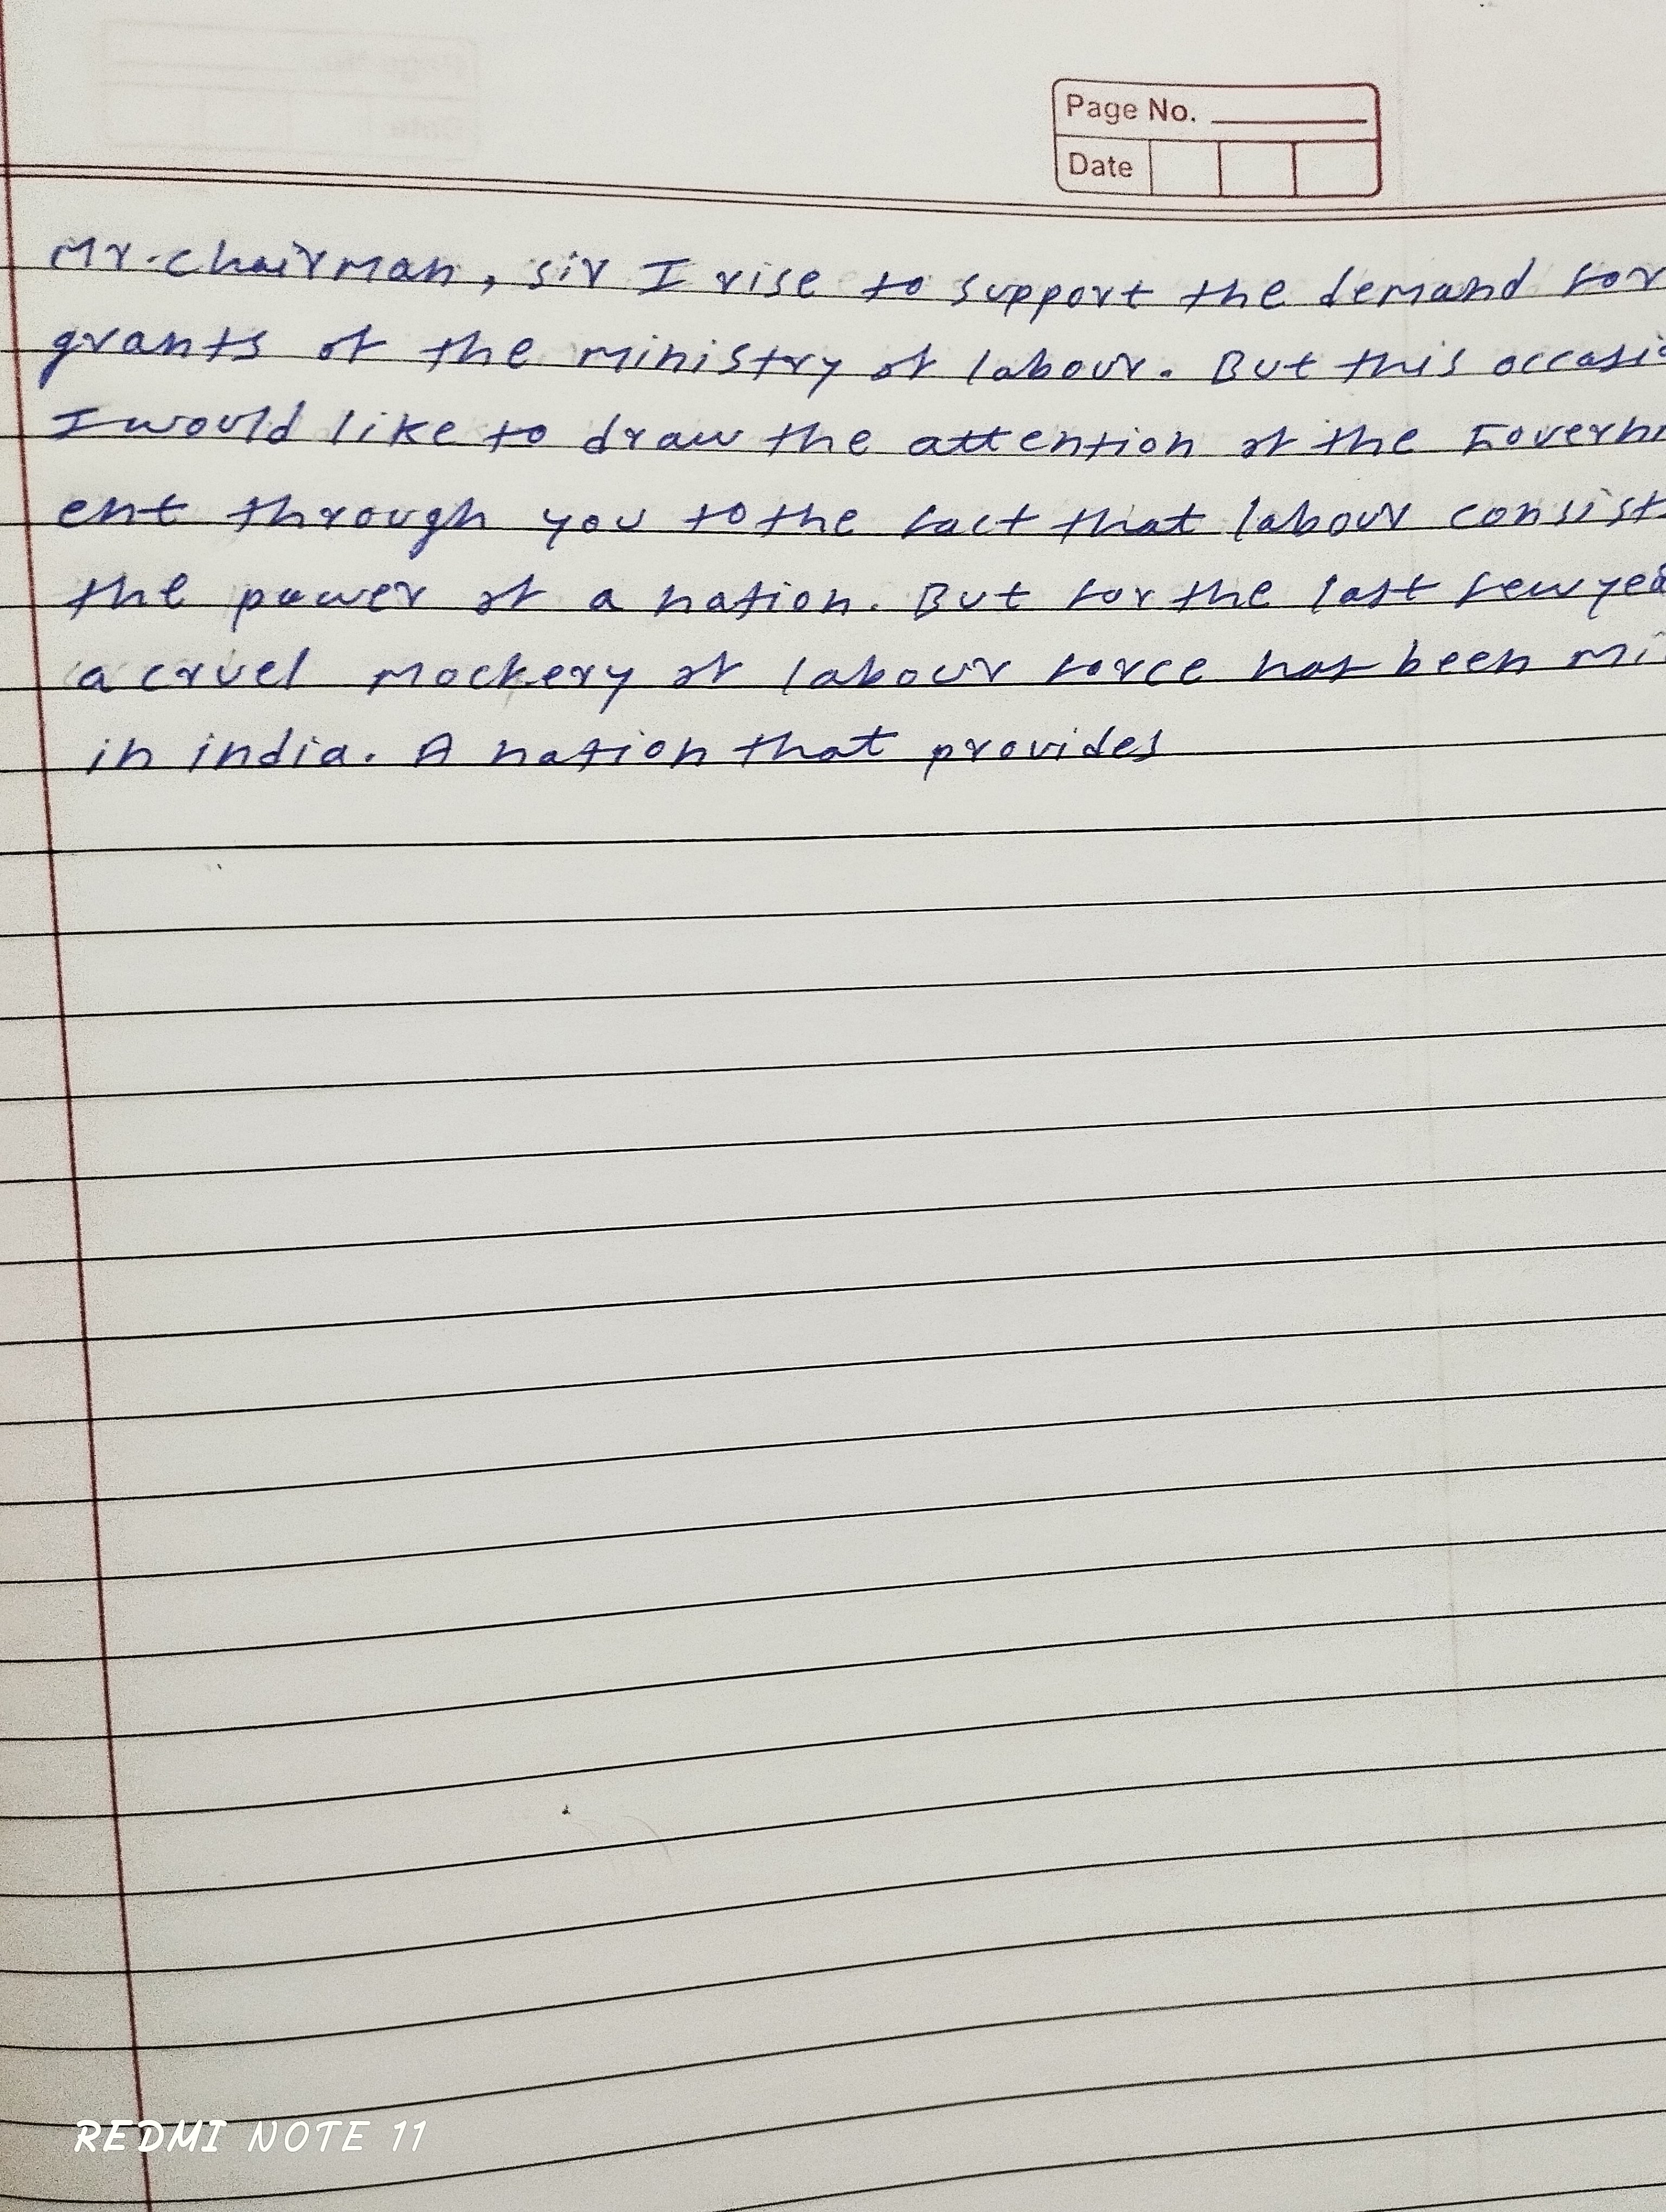 Page No.
Date
Mr. chairman, sir I rise to support the demand for
grants of the ministry of labour. But this occasi
I would like to draw the attention of the Govern
ent through you to the fact that labour consist
the power of a nation. But for the last few yea
a cruel mockery of labour force has been mi
in india. A nation that provides
REDMI NOTE 11